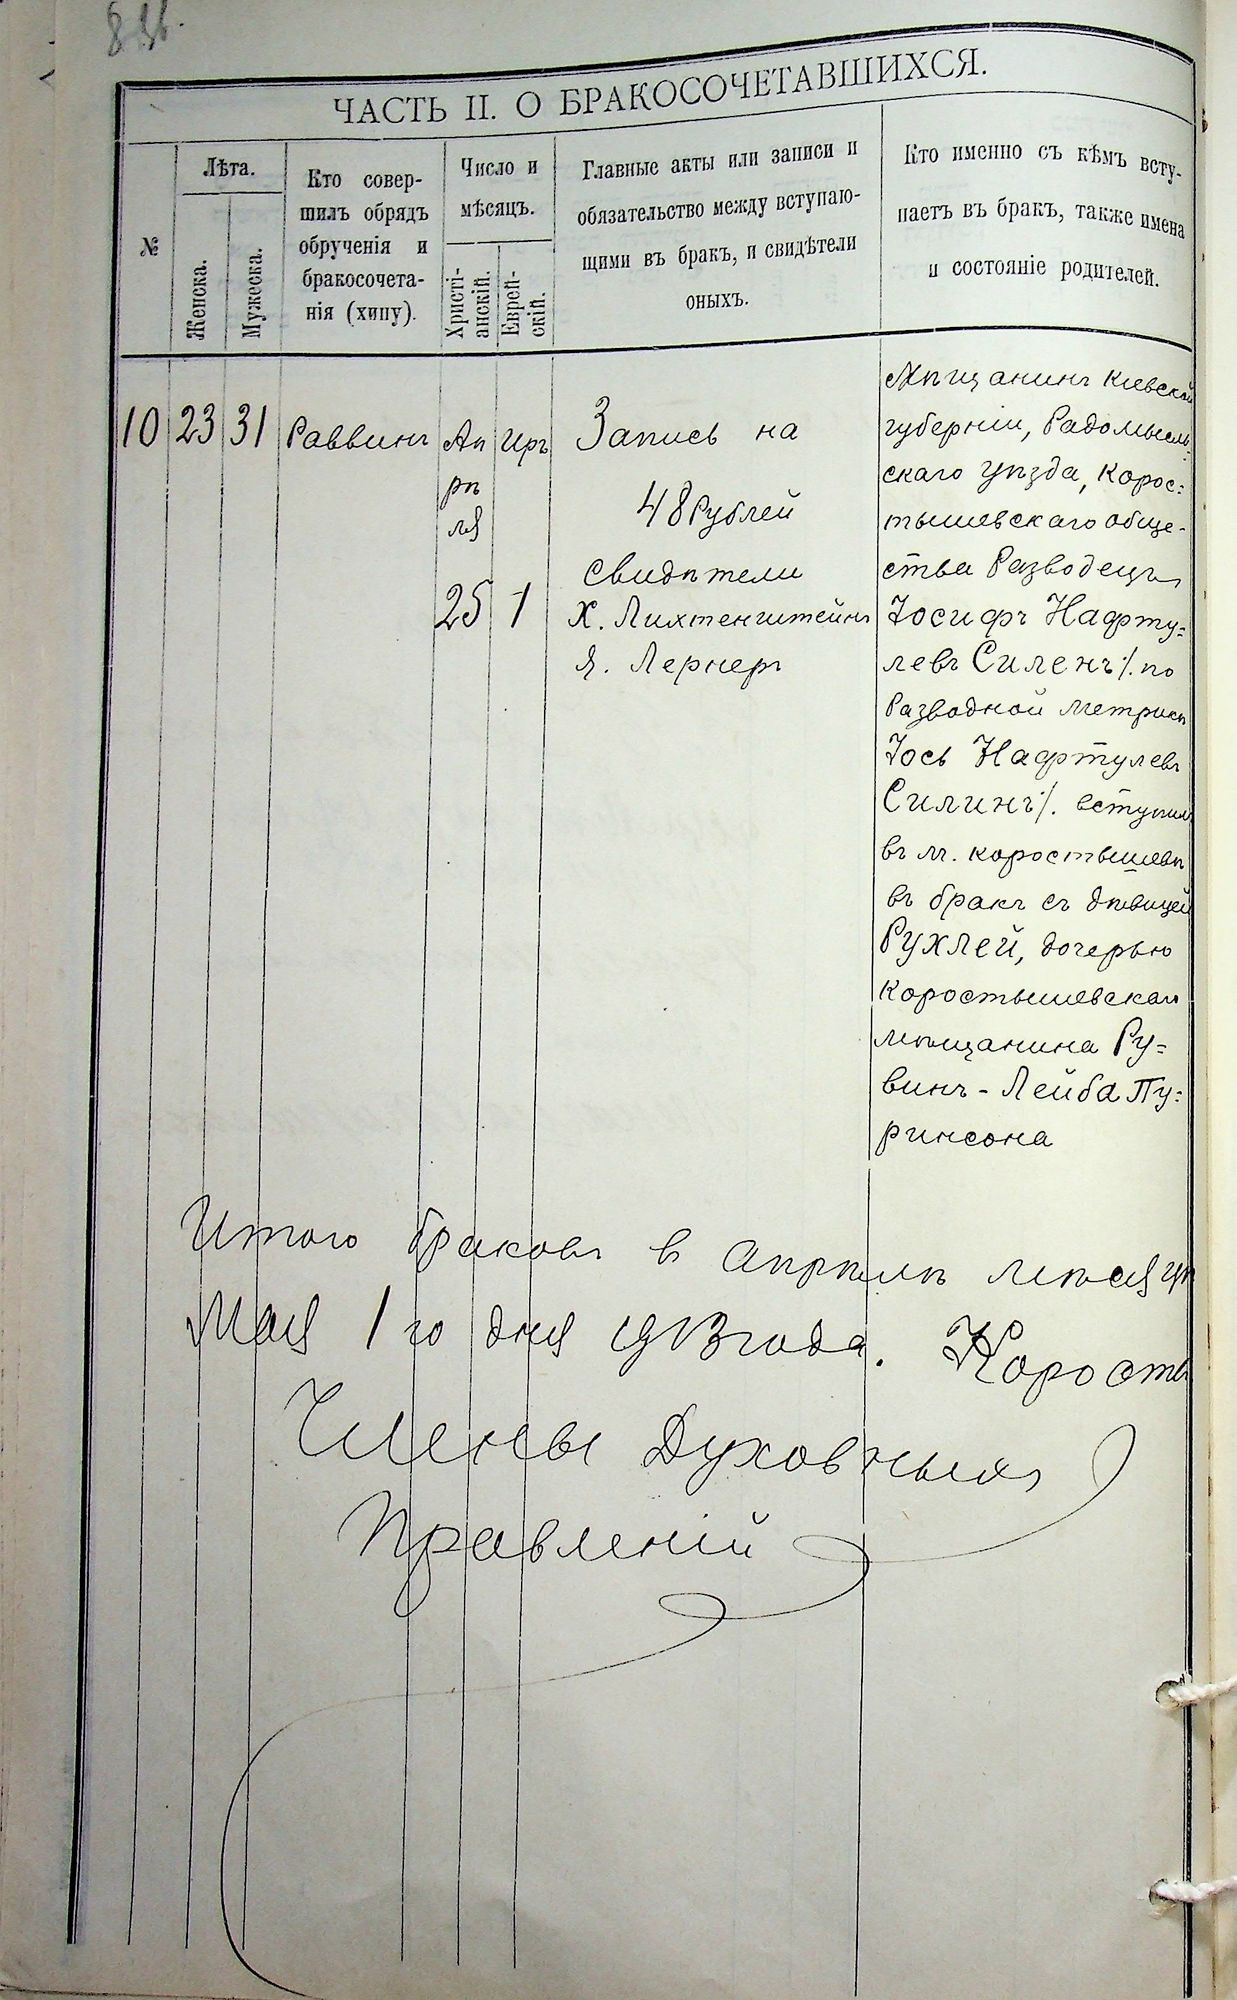 ЧАСТЬ II. О БРАКОСОЧЕТАВШИХСЯ.
№
Лѣта.
Женска.
Мужеска.
Кто совер-
шилъ обрядъ
обрученія и
бракосочета-
нія (хипу).
Число и
мѣсяцъ.
Христі-
анскій.
Еврей-
скій.
Главные акты или записи и
обязательство между вступаю-
щими въ бракъ, и свидѣтели
оныхъ.
Кто именно съ кѣмъ всту-
паетъ въ бракъ, также имена
и состояніе родителей.
10
23
31
Раввинъ
Ап
рѣ
ля
25
Иръ
1
Запись на
48 Рублей
Свидѣтели
Х. Лихтенштейнъ
Я. Лернеръ
Мѣщанинъ Кіевской
губерніи, Радомысль-
скаго уѣзда, Корос=
тышевскаго обще-
ства Разводецъ
Іосифъ Нафту=
левъ Силенъ /. по
Разводной метрикѣ
Іось Нафтулевъ
Силинъ /. вступилъ
въ м. Коростышевѣ
въ бракъ съ дѣвицей
Рухлей, дочерью
Коростышевскаго
мѣщанина Ру=
винъ - Лейба Пу=
ринсона
Итого браковъ в Апрѣлѣ мѣсяцѣ
Мая 1го дня 1913 года. Коросты
Члены Духовныхъ
Правленій